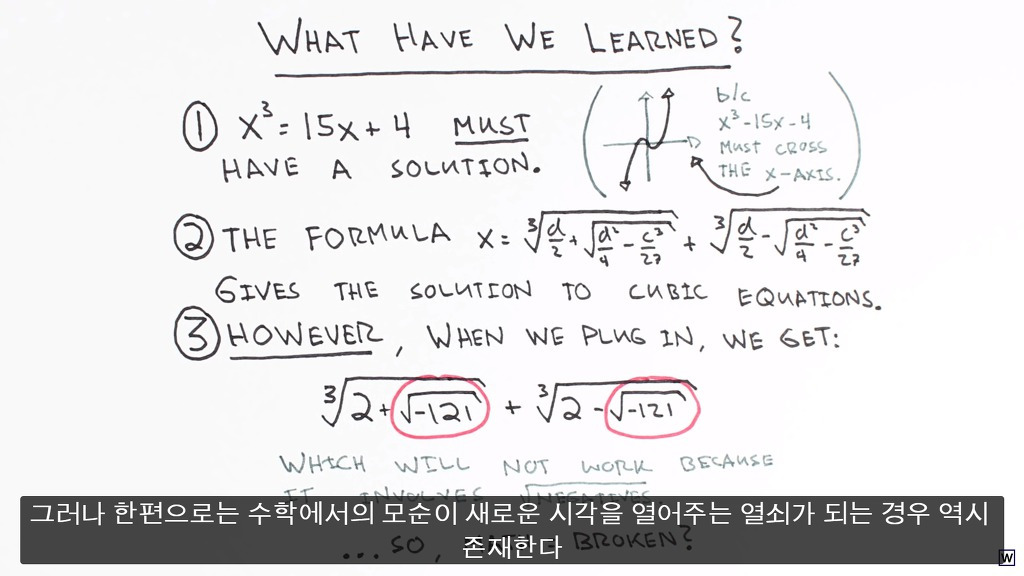 WHAT HAVE WE LEARNED?
① x³ = 15x + 4 MUST
HAVE A SOLUTION.
b/c
x³-15x-4
MUST CROSS
THE X-AXIS.
② THE FORMULA x = ∛(d/2 + √(d²/4 - c³/27)) + ∛(d/2 - √(d²/4 - c³/27))
GIVES THE SOLUTION TO CUBIC EQUATIONS.
③ HOWEVER, WHEN WE PLUG IN, WE GET:
∛(2+√-121) + ∛(2-√-121)
WHICH WILL NOT WORK BECAUSE
IT INVOLVES √NEGATIVES.
...SO, BROKEN?
그러나 한편으로는 수학에서의 모순이 새로운 시각을 열어주는 열쇠가 되는 경우 역시
존재한다
W